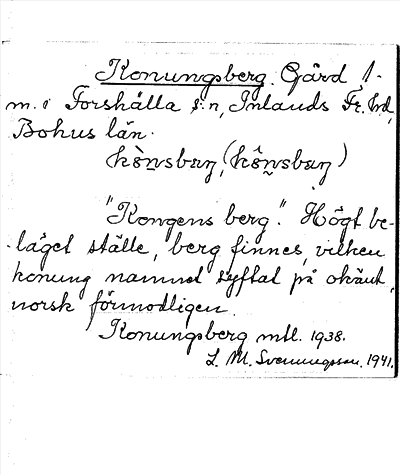 Konungsberg. Gård 1.
m. i Forshälla s:n, Inlands Fr. hd,
Bohus län.
"Kongens berg." Högt be-
läget ställe, berg finnes, vilken
konung namnet syftat på okänt,
norsk förmodligen.
Konungsberg mtl. 1938.
L. M. Svenungsson. 1941.